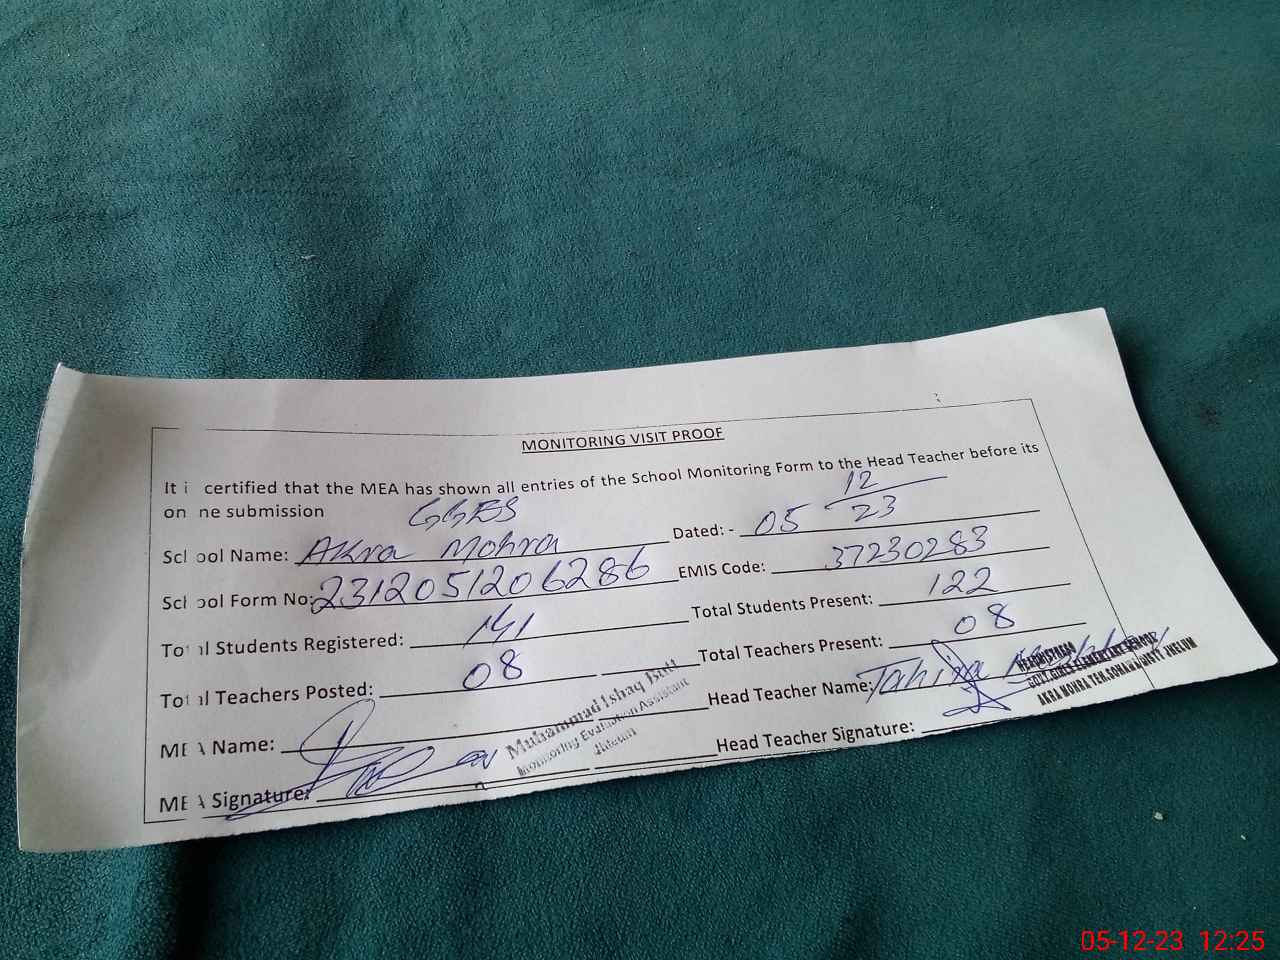 MONITORING VISIT PROOF
It i certified that the MEA has shown all entries of the School Monitoring Form to the Head Teacher before its
on ne submission
GGES
School Name: Akra Mohra Dated: - 05 12/23
School Form No: 2312051206286 EMIS Code: 37230283
Total Students Registered: 141 Total Students Present: 122
Total Teachers Posted: 08 Total Teachers Present: 08
MEA Name: Head Teacher Name: Tahira
Muhammad Ishaq Butt
Monitoring Evaluation Assistant
Jhleum
MEA Signature: Head Teacher Signature:
HEADMISTRESS
GOVT.GIRLS ELEMENTARY SCHOOL
AKRA MOHRA TEH.SOHAWA DISTT JHELUM
05-12-23 12:25